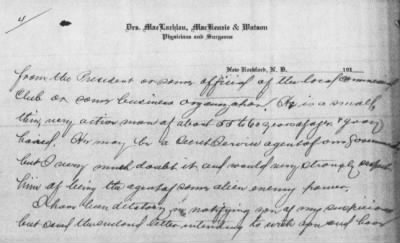 4
Drs. MacLachlan, MacKenzie & Watson
Physicians and Surgeons
New Rockford, N. D. 191
from the President or some official of the local Commercial
Club or some business organization. He is a small
thin very active man of about 55 to 60 years of age & gray
haired. He may be a Secret Service agent of our Government
but I very much doubt it and would very strongly suspect
him of being the agent of some alien enemy power.
I have been dilatory in notifying you of my suspicions
but send the enclosed letter intending to wish you and have